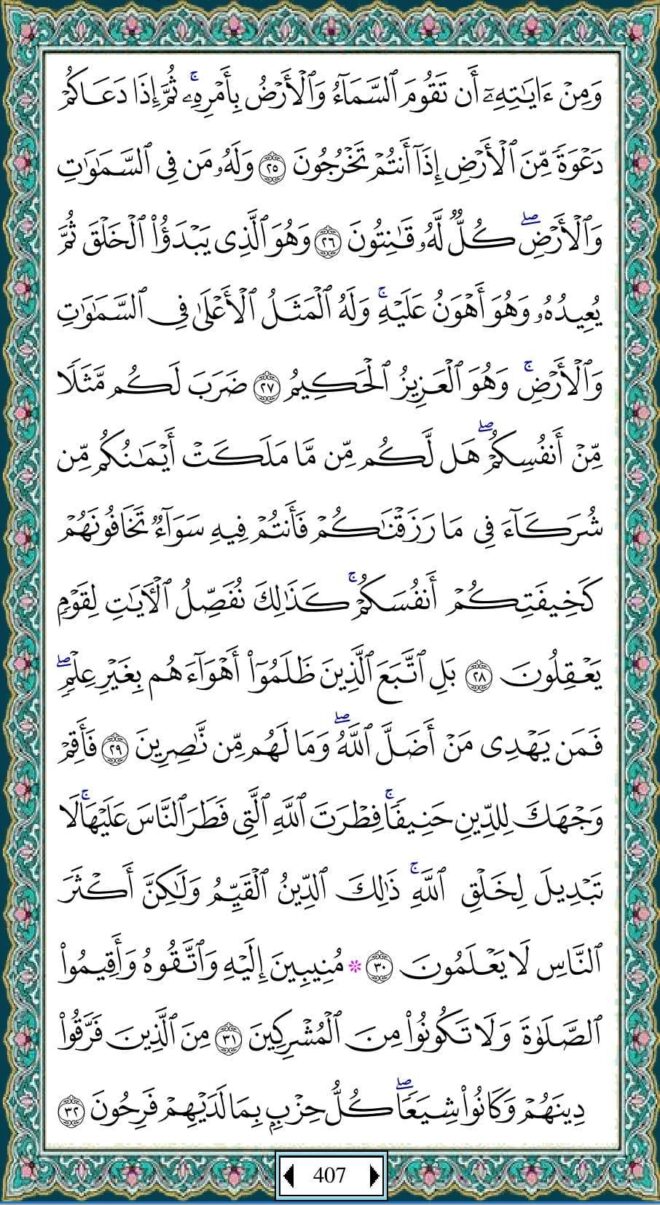 وَمِنْ ءَايَٰتِهِۦٓ أَن تَقُومَ ٱلسَّمَآءُ وَٱلْأَرْضُ بِأَمْرِهِۦ ۚ ثُمَّ إِذَا دَعَاكُمْ
دَعْوَةً مِّنَ ٱلْأَرْضِ إِذَآ أَنتُمْ تَخْرُجُونَ ٢٥ وَلَهُۥ مَن فِى ٱلسَّمَٰوَٰتِ
وَٱلْأَرْضِ ۖ كُلٌّ لَّهُۥ قَٰنِتُونَ ٢٦ وَهُوَ ٱلَّذِى يَبْدَؤُا۟ ٱلْخَلْقَ ثُمَّ
يُعِيدُهُۥ وَهُوَ أَهْوَنُ عَلَيْهِ ۚ وَلَهُ ٱلْمَثَلُ ٱلْأَعْلَىٰ فِى ٱلسَّمَٰوَٰتِ
وَٱلْأَرْضِ ۚ وَهُوَ ٱلْعَزِيزُ ٱلْحَكِيمُ ٢٧ ضَرَبَ لَكُم مَّثَلًا
مِّنْ أَنفُسِكُمْ ۖ هَل لَّكُم مِّن مَّا مَلَكَتْ أَيْمَٰنُكُم مِّن
شُرَكَآءَ فِى مَا رَزَقْنَٰكُمْ فَأَنتُمْ فِيهِ سَوَآءٌ تَخَافُونَهُمْ
كَخِيفَتِكُمْ أَنفُسَكُمْ ۚ كَذَٰلِكَ نُفَصِّلُ ٱلْءَايَٰتِ لِقَوْمٍ
يَعْقِلُونَ ٢٨ بَلِ ٱتَّبَعَ ٱلَّذِينَ ظَلَمُوٓا۟ أَهْوَآءَهُم بِغَيْرِ عِلْمٍ ۖ
فَمَن يَهْدِى مَنْ أَضَلَّ ٱللَّهُ ۖ وَمَا لَهُم مِّن نَّٰصِرِينَ ٢٩ فَأَقِمْ
وَجْهَكَ لِلدِّينِ حَنِيفًا ۚ فِطْرَتَ ٱللَّهِ ٱلَّتِى فَطَرَ ٱلنَّاسَ عَلَيْهَا ۚ لَا
تَبْدِيلَ لِخَلْقِ ٱللَّهِ ۚ ذَٰلِكَ ٱلدِّينُ ٱلْقَيِّمُ وَلَٰكِنَّ أَكْثَرَ
ٱلنَّاسِ لَا يَعْلَمُونَ ٣٠ * مُنِيبِينَ إِلَيْهِ وَٱتَّقُوهُ وَأَقِيمُوا۟
ٱلصَّلَوٰةَ وَلَا تَكُونُوا۟ مِنَ ٱلْمُشْرِكِينَ ٣١ مِنَ ٱلَّذِينَ فَرَّقُوا۟
دِينَهُمْ وَكَانُوا۟ شِيَعًا ۖ كُلُّ حِزْبٍۭ بِمَا لَدَيْهِمْ فَرِحُونَ ٣٢
407